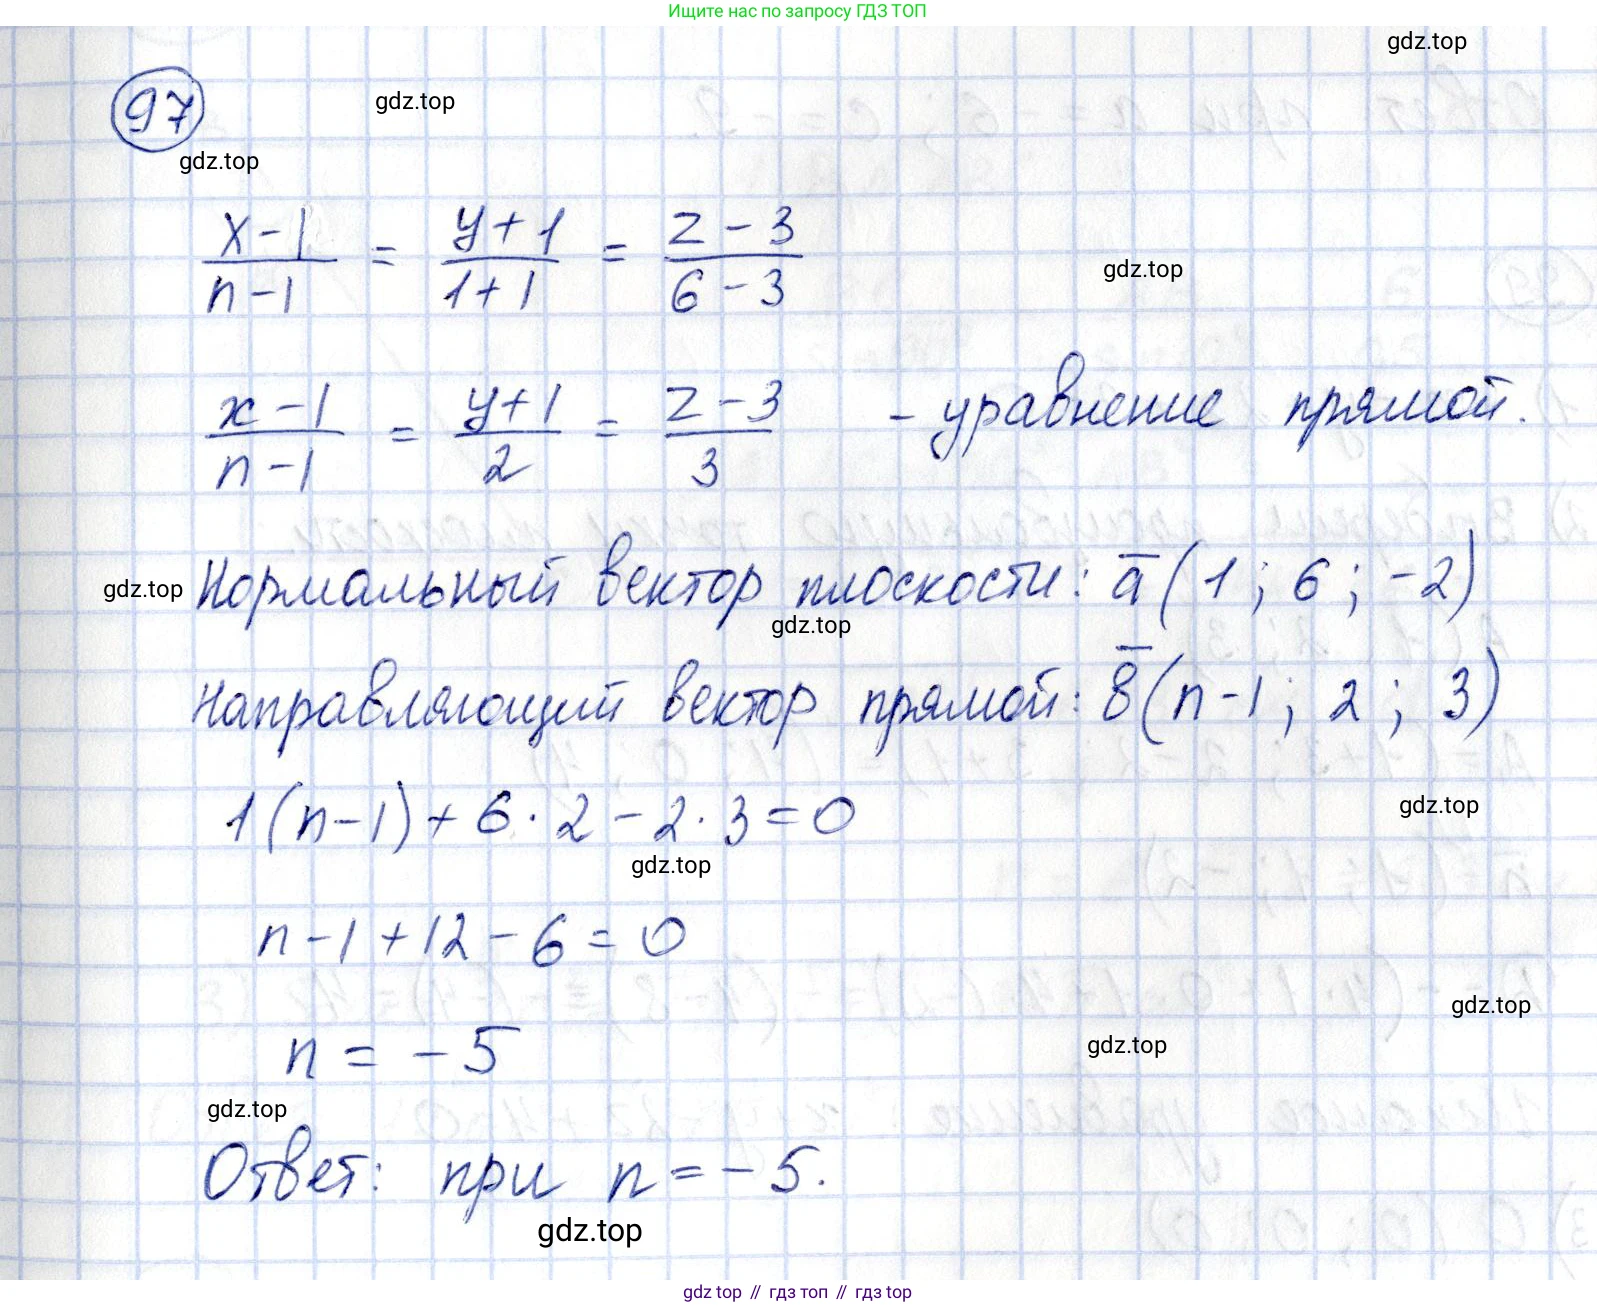 Ищите нас по запросу ГДЗ ТОП
gdz.top
97
gdz.top
gdz.top
x-1/n-1 = y+1/1+1 = z-3/6-3
gdz.top
x-1/n-1 = y+1/2 = z-3/3 - уравнение прямой.
gdz.top
Нормальный вектор плоскости: a̅(1; 6; -2)
gdz.top
Направляющий вектор прямой: в̅(n-1; 2; 3)
1(n-1)+6·2-2·3=0
gdz.top
gdz.top
n-1+12-6=0
gdz.top
n = -5
gdz.top
gdz.top
Ответ: при n=-5.
gdz.top
gdz top // гдз топ // гдз top